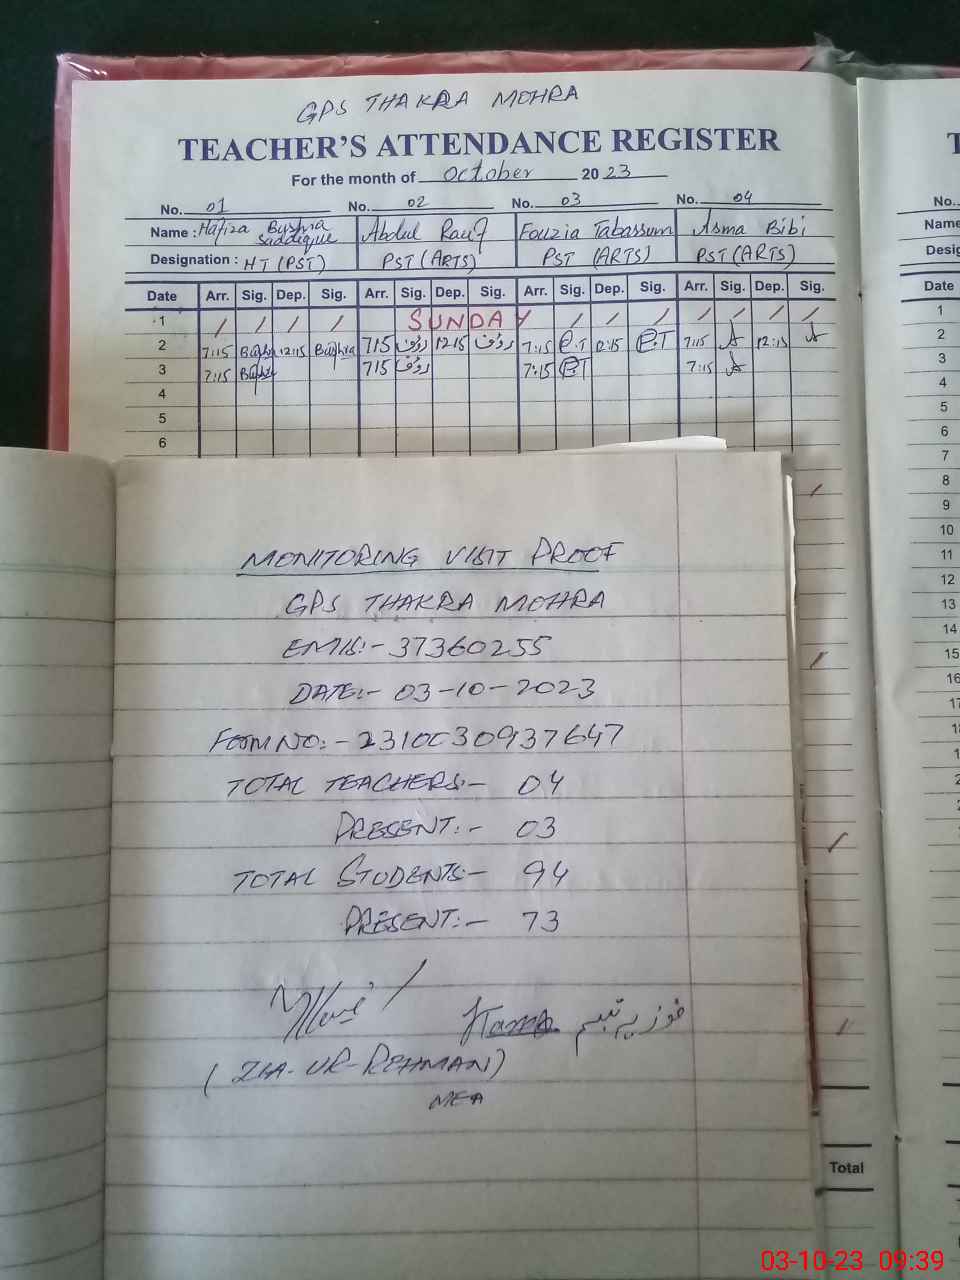 GPS THAKRA MOHRA
TEACHER'S ATTENDANCE REGISTER
For the month of October 2023
No. 01 No. 02 No. 03 No. 04 No.
Name : Hafiza Bushra Saddique Abdul Rauf Fouzia Tabassum Asma Bibi Name
Designation : HT (PST) PST (ARTS) PST (ARTS) PST (ARTS) Desig
Date Arr. Sig. Dep. Sig. Arr. Sig. Dep. Sig. Arr. Sig. Dep. Sig. Arr. Sig. Dep. Sig. Date
1 / / / / SUNDAY / / / / / / / 1
2 7:15 Bushra 12:15 Bushra 715 رؤف 1215 رؤف 7:15 F.T 12:15 F.T 7:15 A 12:15 A 2
3 7:15 Bushra 715 رؤف 7:15 F.T 7:15 A 3
4 4
5 5
6 6
7
8
9
10
11
12
13
14
15
16
Total
MONITORING VISIT PROOF
GPS THAKRA MOHRA
EMIS:- 37360255
DATE:- 03-10-2023
Form No:- 2310030937647
TOTAL TEACHERS:- 04
PRESENT:- 03
TOTAL STUDENTS:- 94
PRESENT:- 73
فوزیہ تبسم
(ZIA-UR-REHMAN)
MEA
03-10-23 09:39